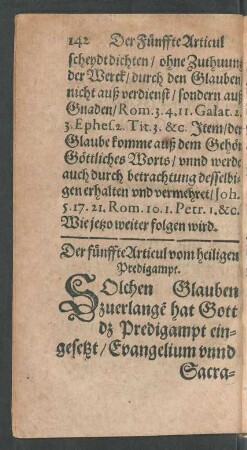 142 Der Fünffte Articul
scheydt dichten / ohne Zuthuung
der Werck / durch den Glauben
nicht auß verdienst / sondern auß
Gnaden / Rom. 3. 4. 11. Galat. 2.
3. Ephes. 2. Tit. 3. &c. Item / der
Glaube komme auß dem Gehör
Göttliches Worts / vnnd werde
auch durch betrachtung desselbi-
gen erhalten vnd vermehret / Joh.
5. 17. 21. Rom. 10. 1. Petr. 1. &c.
Wie jetzo weiter folgen wird.
Der fünffte Articul vom heiligen
Predigampt.
SOlchen Glauben
zuerlangē hat Gott
dz Predigampt ein-
gesetzt / Evangelium vnnd
Sacra-